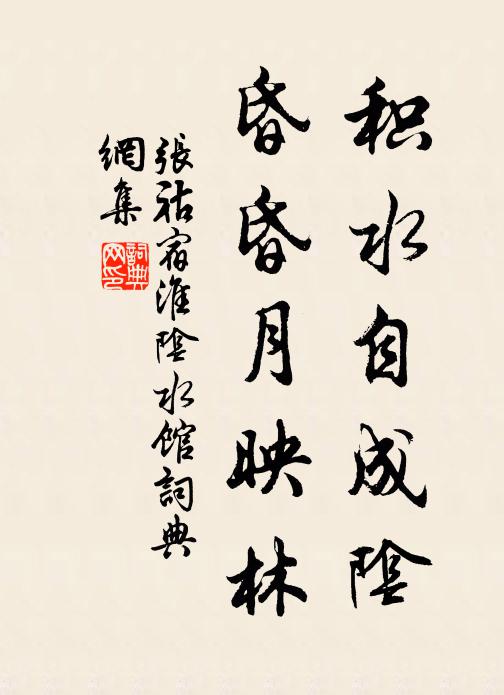 积水自成陰
昏昏月映林
張祜宿淮陰水馆詞典
網集
詞典
网印